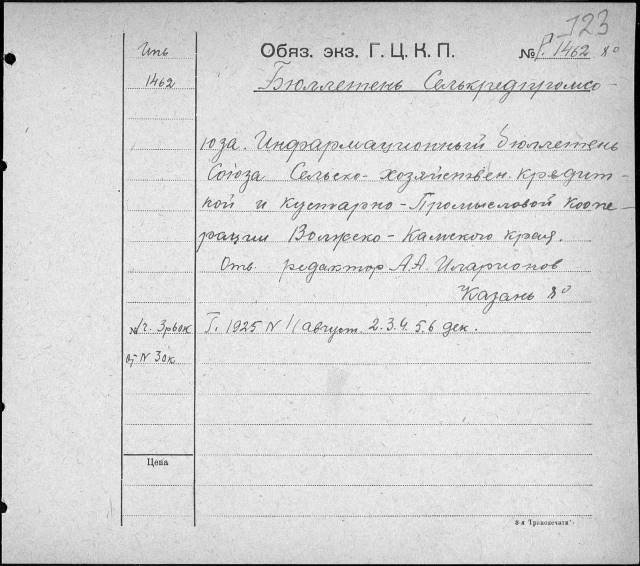 123
Инь Обяз. экз. Г. Ц. К. П. № Р. 1462 8°
1462 Бюллетень Селькредпромсо-
юза. Информационный бюллетень
Союза Сельско-хозяйствен. кредит-
ной и кустарно-Промысловой коопе-
рации Волжско-Камского края.
Отв. редактор А.А. Иларионов
Казань 8°
Г. 1925 N 1 (август. 2. 3. 4. 5. 6 дек.
от N 3 ок
Цена
3-я Транспечати.